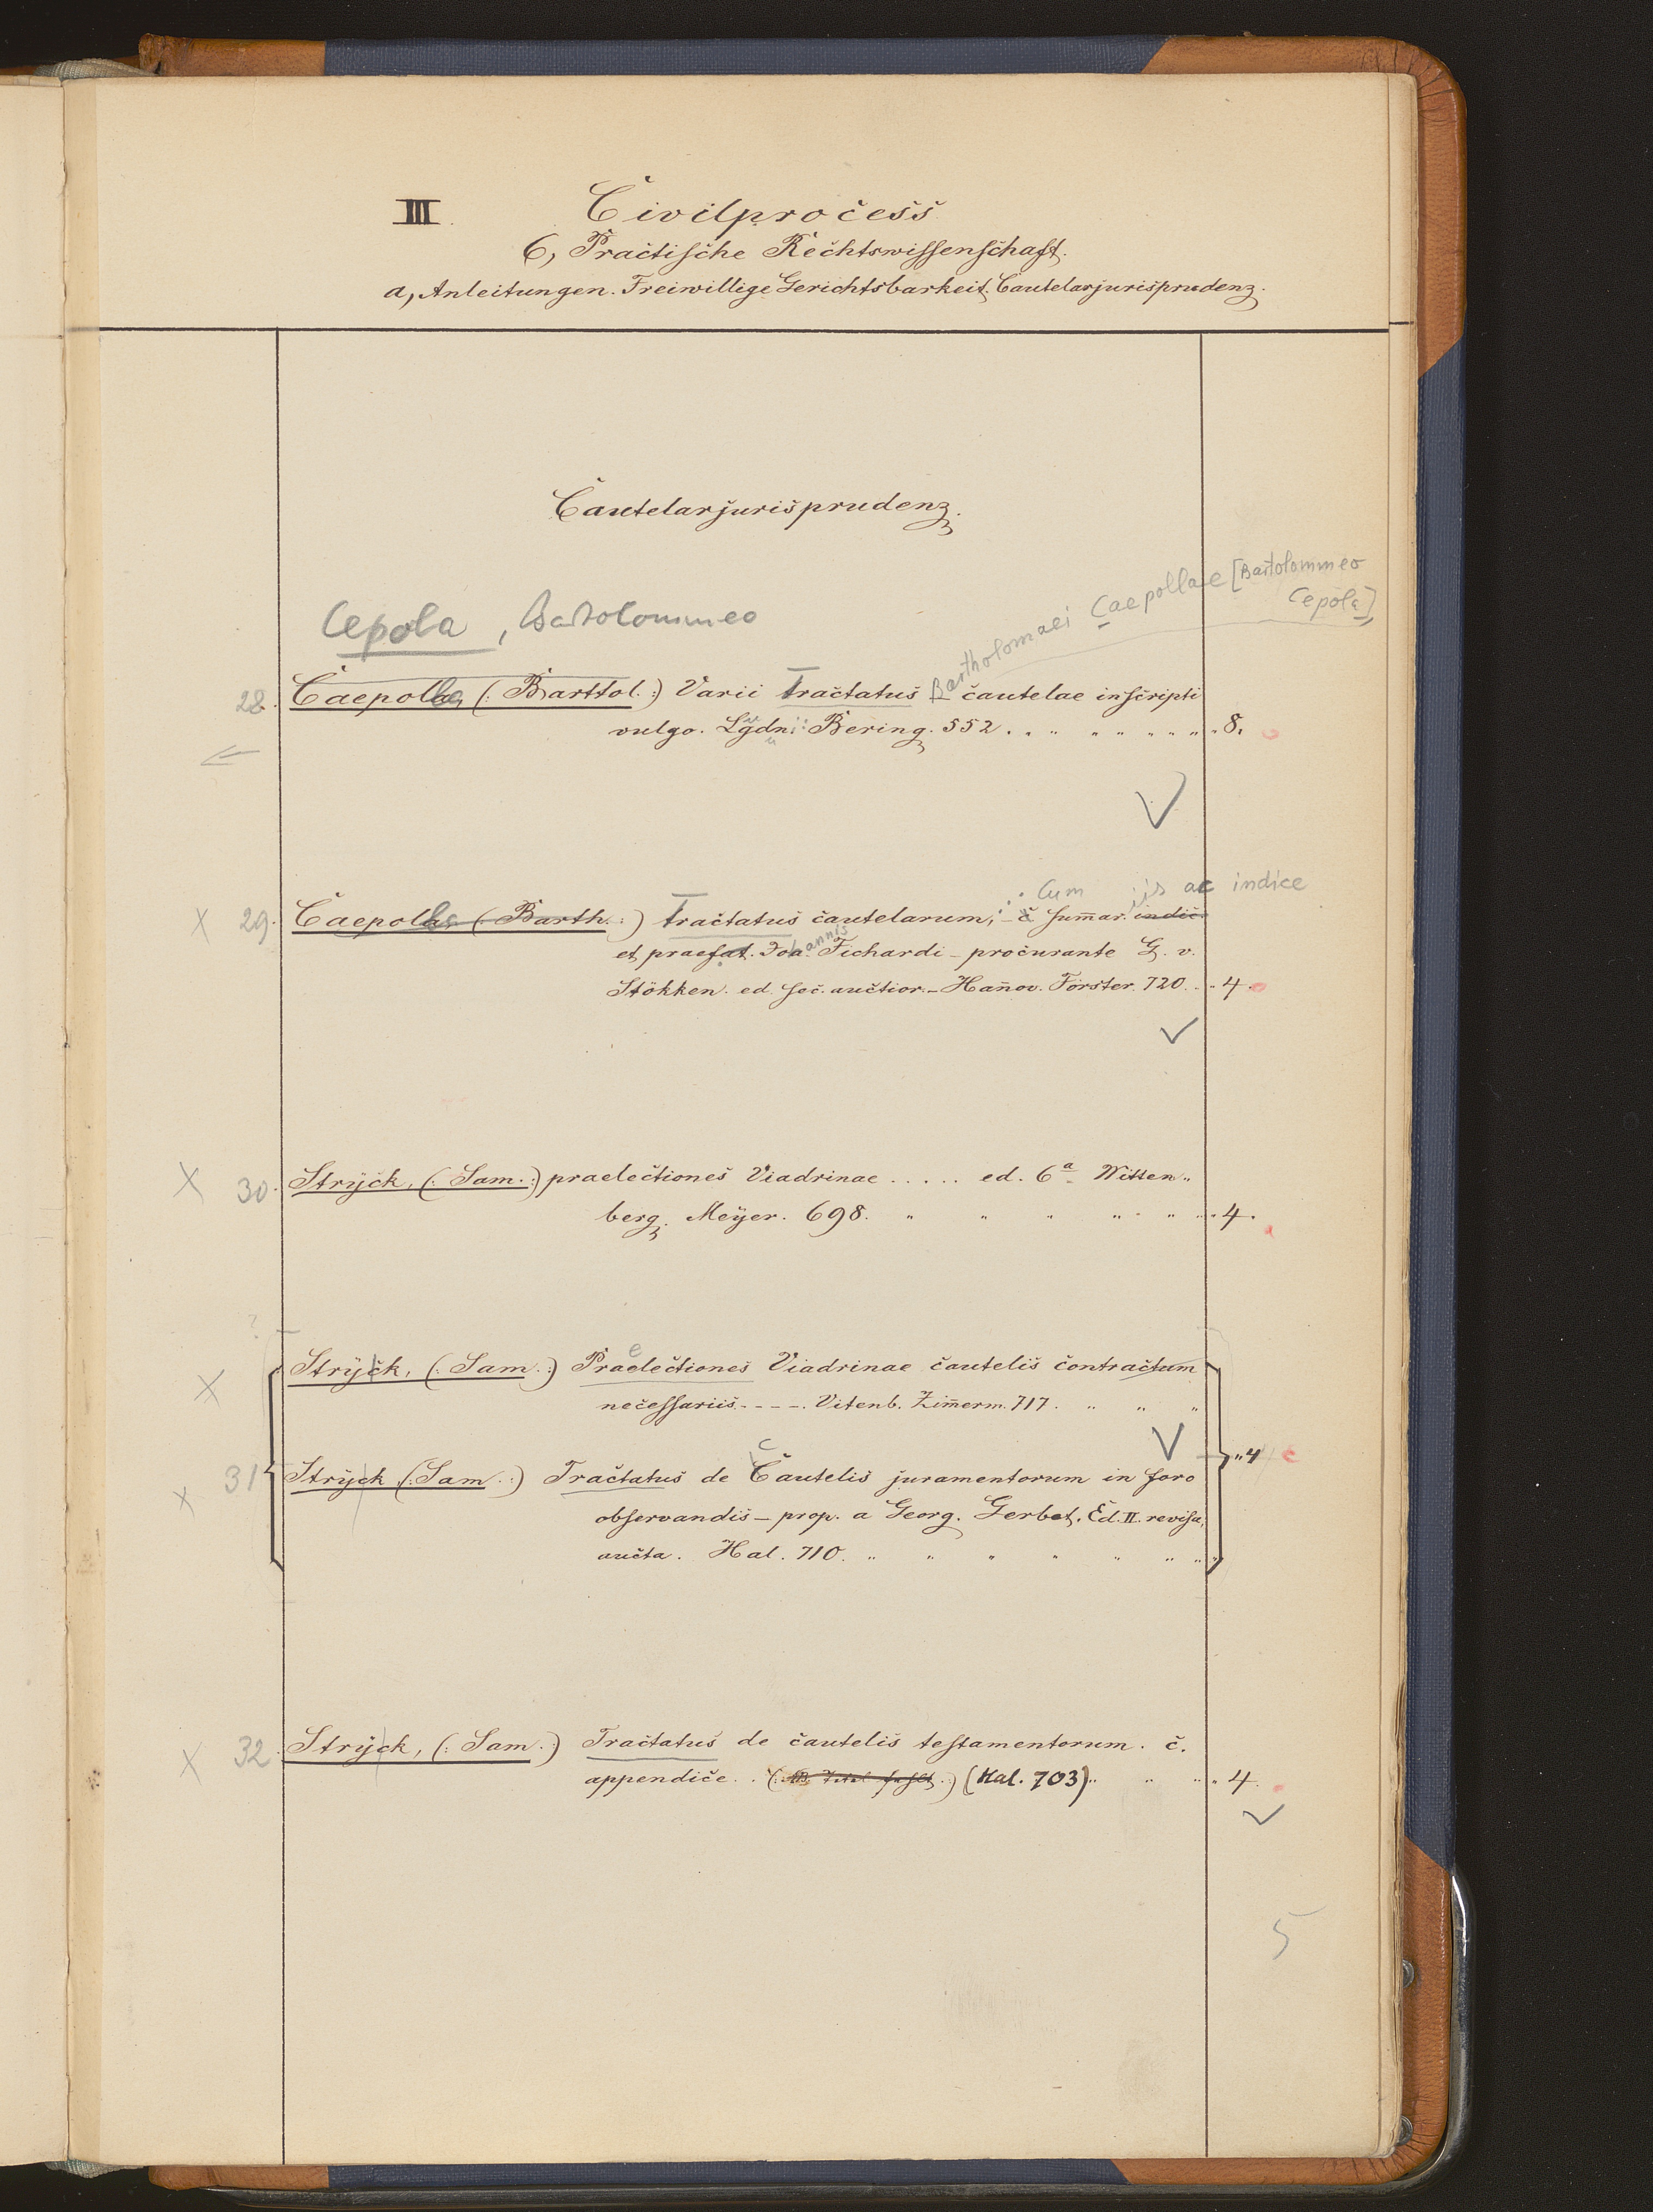 III. Civilprocess
6, Practische Rechtswissenschaft.
a, Anleitungen. Freiwillige Gerichtsbarkeit. Cautelarjurisprudenz.
Cautelarjurisprudenz.
Bartholomaei Caepollae [Bartolommeo
Cepola]
Cepola, Bartolommeo
28. Caepolla (: Barttol. :) Varii Tractatus cautelae inscripti
vulgo. Lgdni: Bering. 552. 8.
Cum iis ac indice
29. Caepolla (: Barth. :) Tractatus cautelarum, c̄ sum̄ar. indic.
et praefat. Johannis Fichardi - procurante G. v.
Stökken. ed. sec. auctior. - Han̄ov. Förster. 720. 4.
30. Strÿck, (: Sam. :) praelectiones Viadrinae ..... ed. 6a Witten„
berg. Meÿer. 698. 4.
Strÿck, (: Sam. :) Praelectiones Viadrinae cautelis contractum
necessariis - - - -. Vitenb. Zim̄erm. 717.
31 Strÿck (: Sam. :) Tractatus de Cautelis juramentorum in foro 4
observandis - prop. a Georg. Gerbet. Ed. II. revisa,
aucta. Hal. 710.
32. Strÿck, (: Sam. :) Tractatus de cautelis testamentorum. c.
appendice. (: Titel fehlt :) (Hal. 703) 4.
5